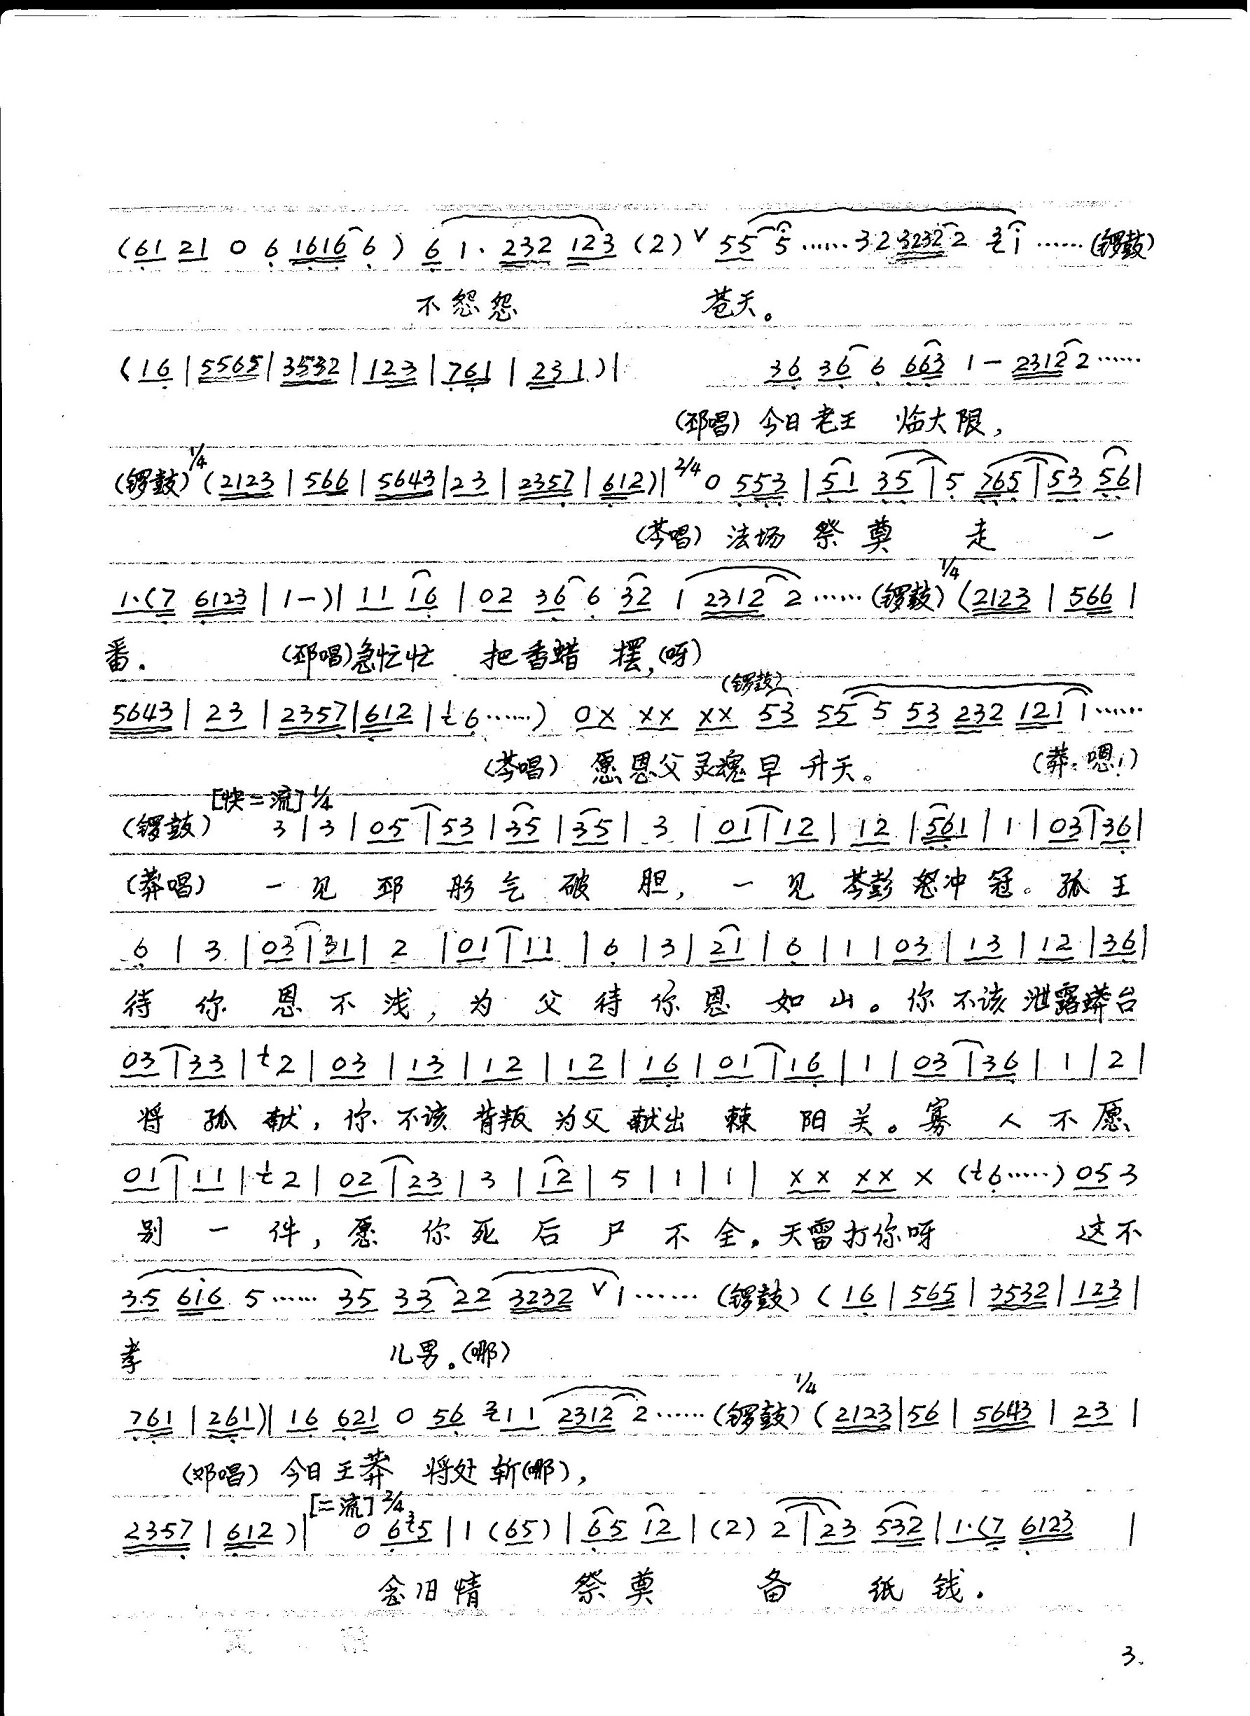 (61 21 0 6 1616 6) 6 1· 232 123 (2) ∨ 55 5 …… 32 3232 2 2 1 …… (锣鼓)
不怨怨 苍天。
(16 | 5565 | 3532 | 123 | 761 | 231) | 36 36 6 663 1 — 2312 2 ……
(邳唱) 今日老王 临大限,
(锣鼓) 1/4 (2123 | 566 | 5643 | 23 | 2357 | 612) | 2/4 0 553 | 51 35 | 5 765 | 53 56 |
(苓唱) 法场 祭 奠 走 一
1·(7 6123 | 1—) | 11 16 | 02 36 6 32 1 2312 2 …… (锣鼓) 1/4 (2123 | 566 |
番. (邳唱)急忙忙 把香蜡 摆,(呀)
5643 | 23 | 2357 | 612 | 6 ……) 0X XX XX (锣鼓) 53 55 5 53 232 121 1 ……
(苓唱) 愿恩父灵魂早 升天。 (莽:嗯!)
(锣鼓) [快二流] 1/4 3 | 3 | 05 | 53 | 35 | 35 | 3 | 01 | 12 | 12 | 561 | 1 | 03 | 36 |
(莽唱) 一 见 邳 彤 气 破 胆, 一 见 苓彭 怒冲 冠。孤 王
6 | 3 | 03 | 31 | 2 | 01 | 11 | 6 | 3 | 21 | 6 | 1 | 03 | 13 | 12 | 36 |
待 你 恩 不 浅, 为 父 待 你 恩 如 山。你 不该 泄露蟒台
03 | 33 | 2 | 03 | 13 | 12 | 12 | 16 | 01 | 16 | 1 | 03 | 36 | 1 | 2 |
将 孤 献, 你 不该 背叛 为父 献出 棘 阳 关。寡 人 不 愿
01 | 11 | 2 | 02 | 23 | 3 | 12 | 5 | 1 | 1 | XX XX X (6 ……) 05 3
别 一 件, 愿 你 死 后 尸 不 全。天雷打你呀 这不
3·5 616 5 …… 35 33 22 3232 ∨ 1 …… (锣鼓) (16 | 565 | 3532 | 123 |
孝 儿男。(哪)
761 | 261) | 16 621 0 56 2 1 1 2312 2 …… (锣鼓) 1/4 (2123 | 56 | 5643 | 23 |
(邓唱) 今日 王莽 将处 斩(哪),
2357 | 612) | [二流] 2/4 0 6 5 | 1 (65) | 65 12 | (2) 2 | 23 532 | 1·(7 6123 |
念旧情 祭 奠 备 纸 钱.
3.